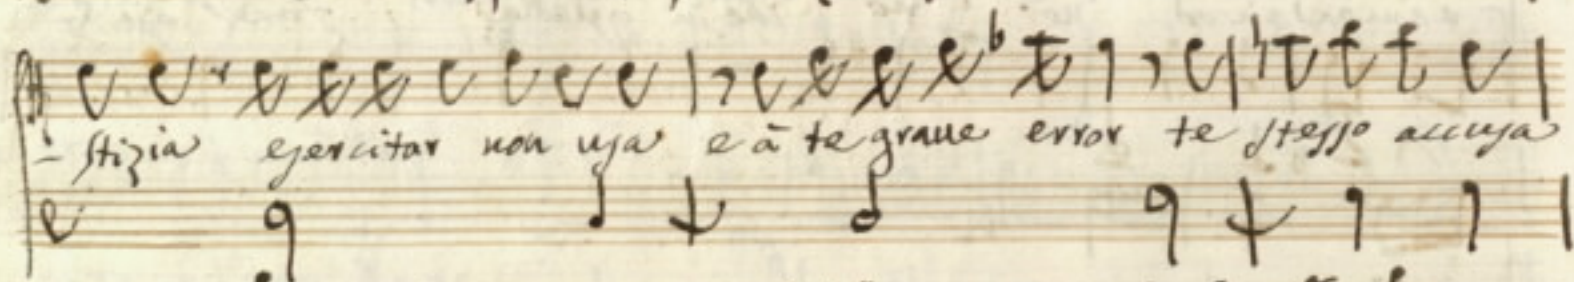 - stizia esercitar non usa e à te graue error te stesso accusa